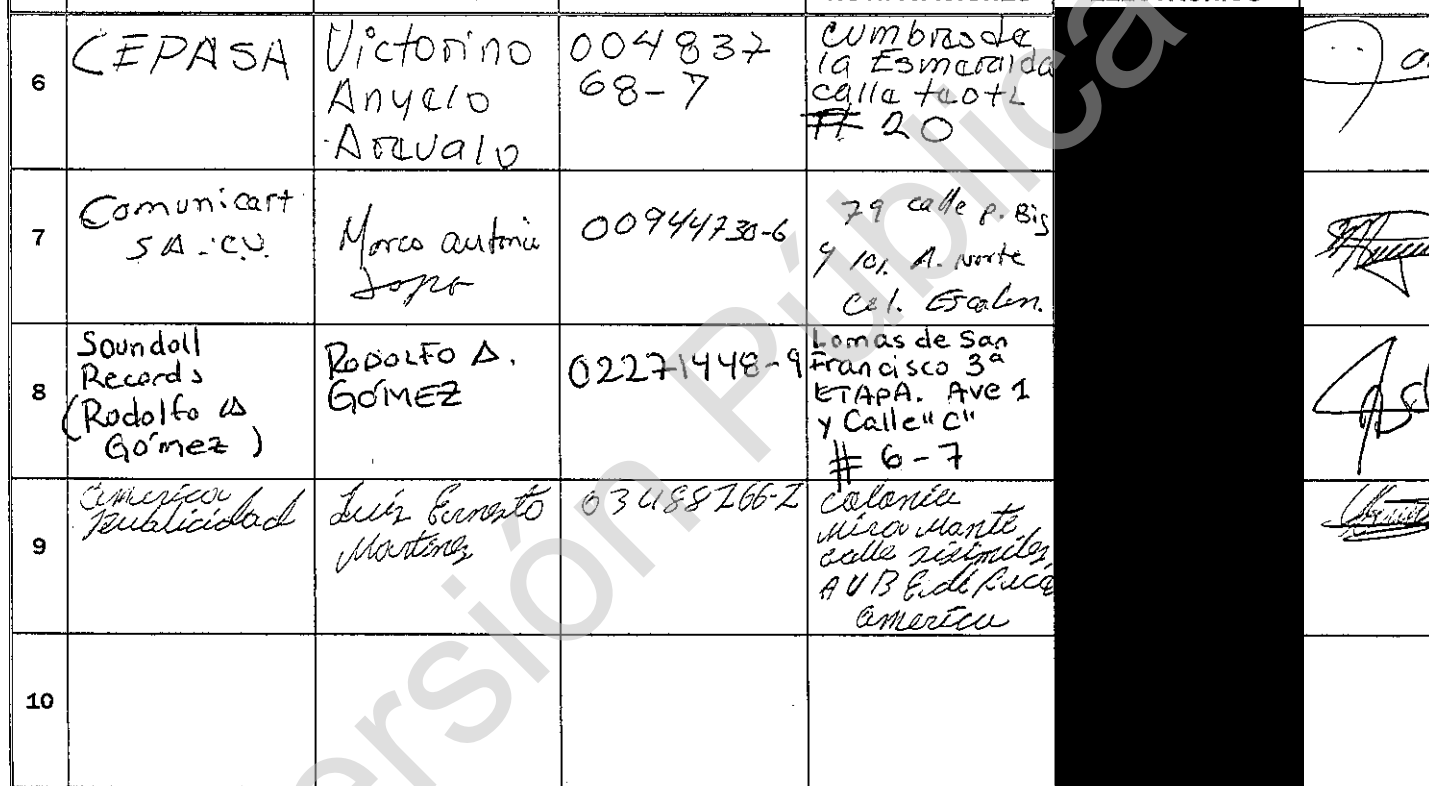 6
CEPASA
Victorino
Anyelo
Arevalo
004837
68-7
cumbres de
la Esmeralda
calle teotl
# 20
7
Comunicart
S A . C.V.
Marco antonio
00944730-6
79 calle p. Big
y 101 A. Norte
Col. Escalon.
8
Soundoll
Records
(Rodolfo A
Gómez )
RODOLFO A.
GÓMEZ
02271448-9
Lomas de San
Francisco 3ª
ETAPA. Ave 1
y Calle "C"
# 6-7
9
america
Publicidad
Luis Ernesto
Martinez
03488266-2
colonia
Mira Monte
calle sisimiles
america
10
Versión Pública